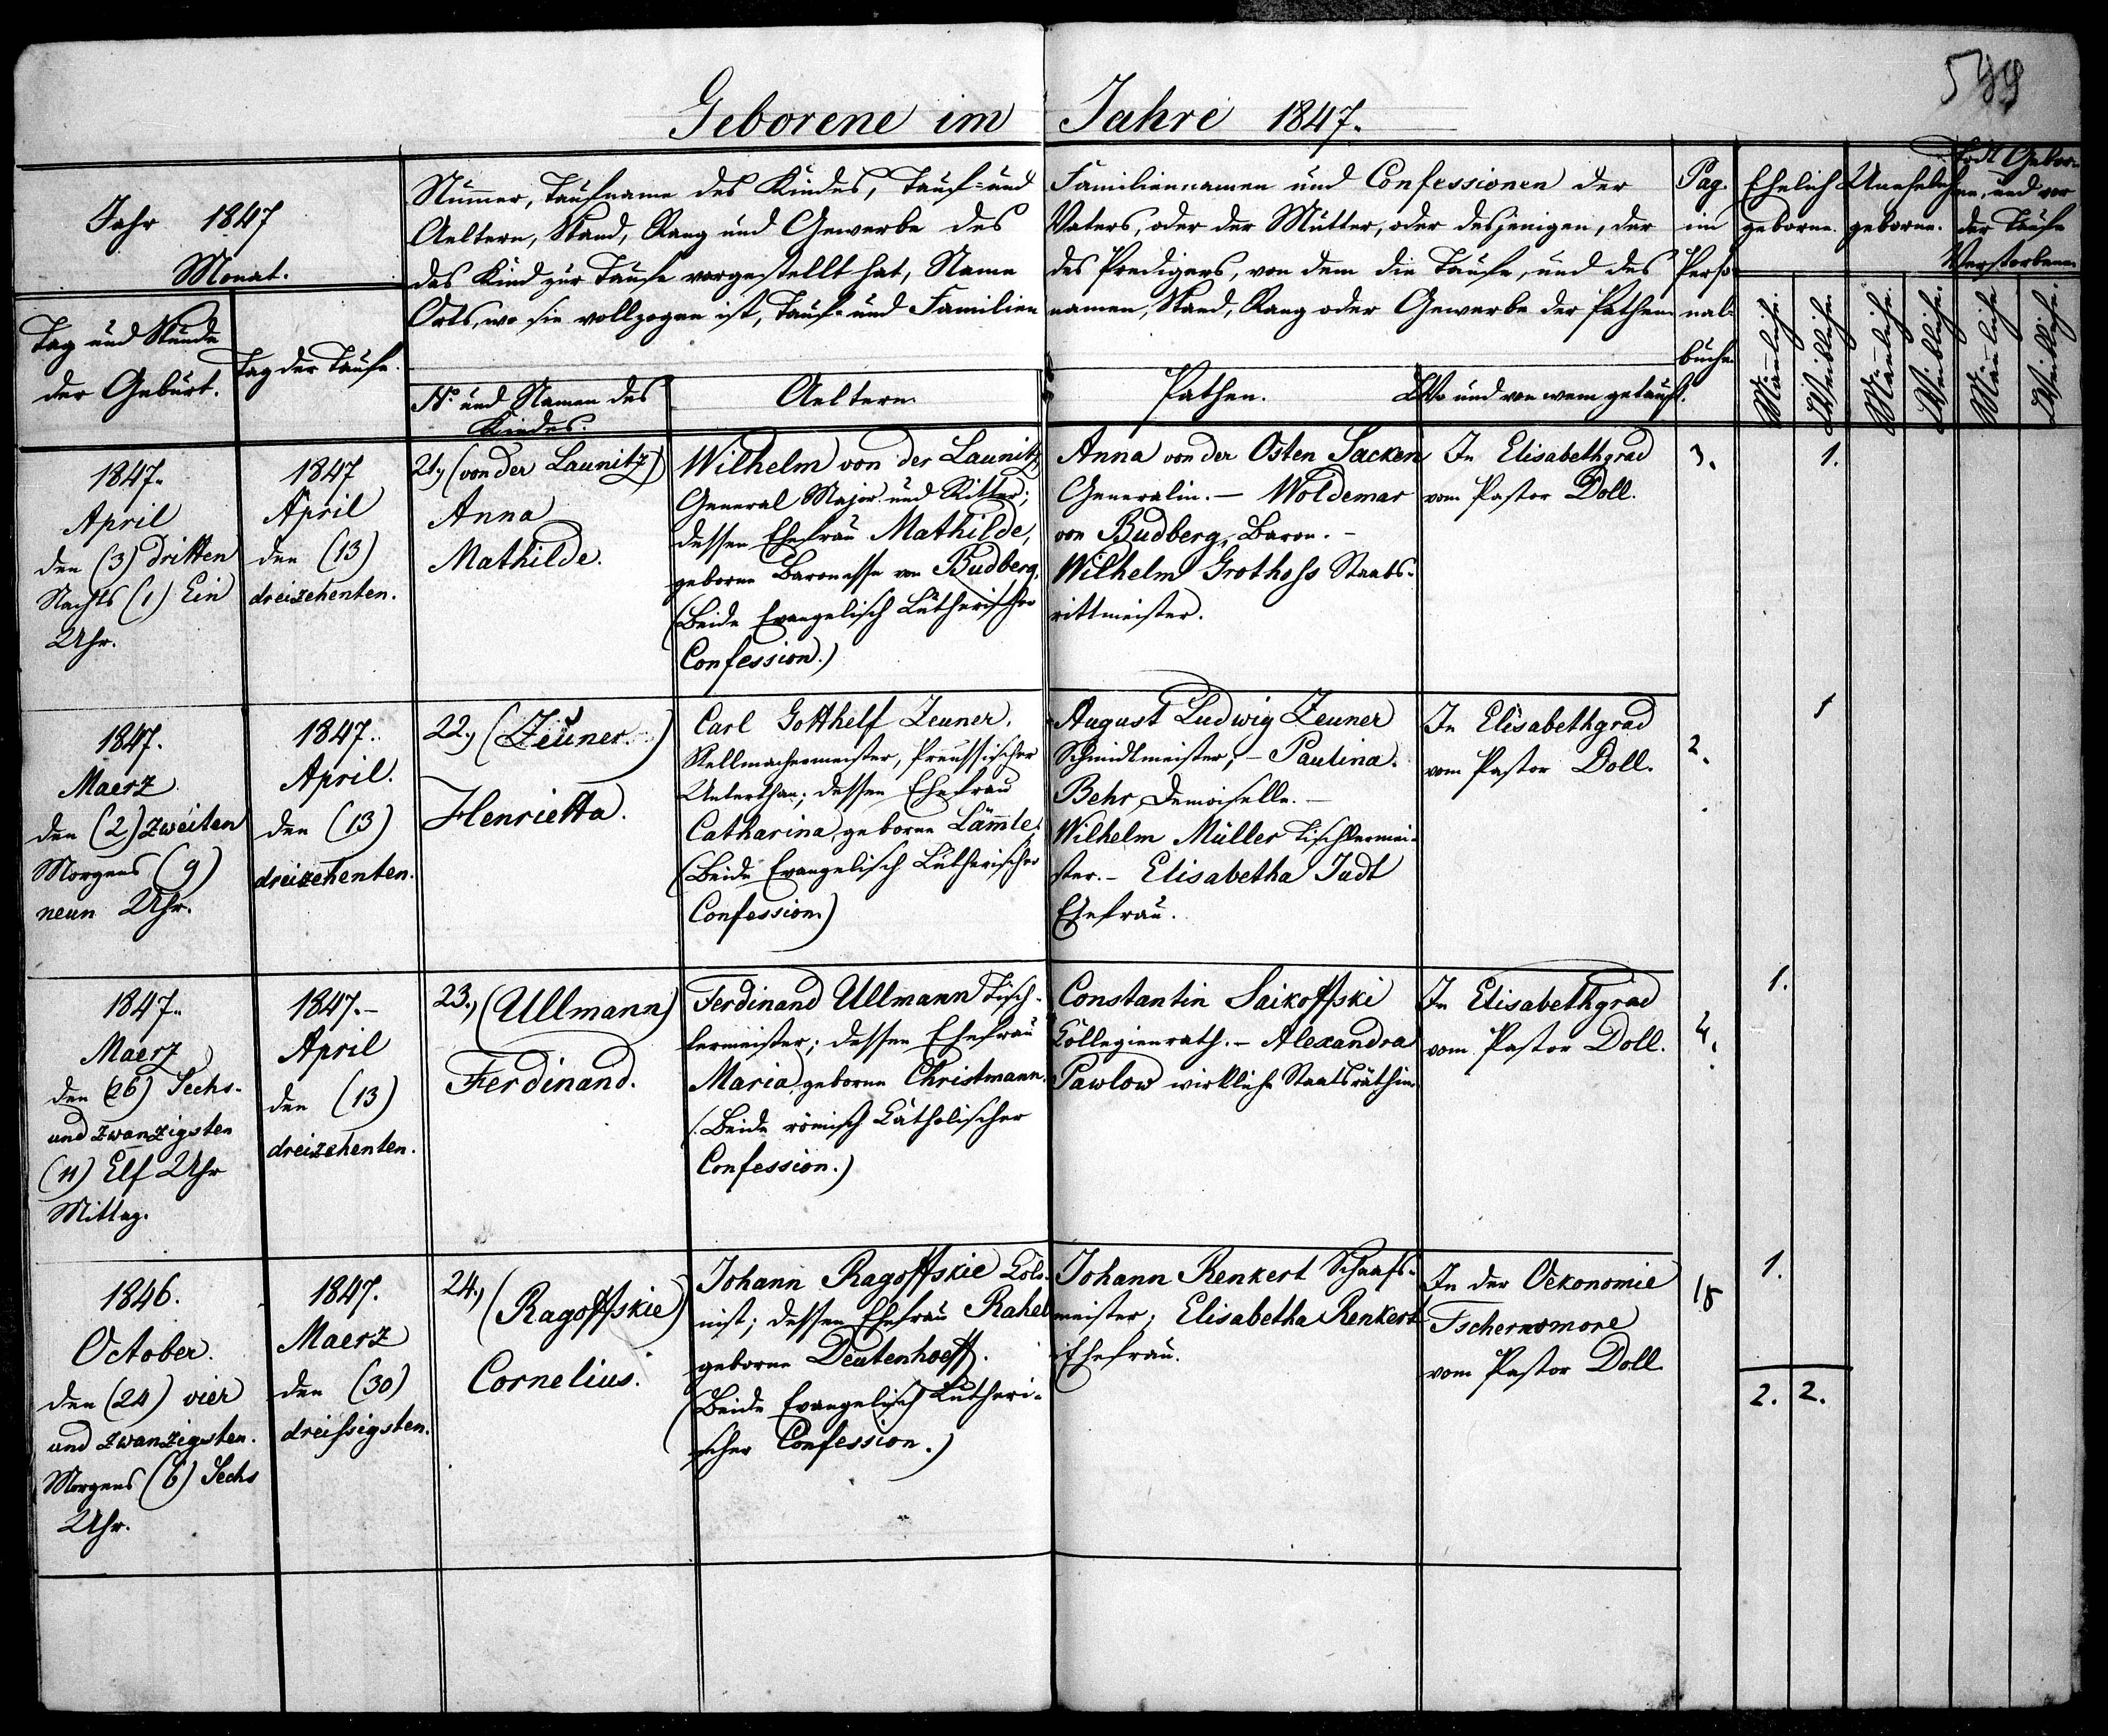 599
Geborene im Jahre 1847.
Jahr 1847
Monat.
Tag und Stunde
der Geburt.
Tag der Taufe.
Nummer, Taufname des Kindes, Tauf- und Familiennamen und Confessionen der
Aeltern, Stand, Rang und Gewerbe des Vaters, oder der Mutter, oder desjenigen, der
das Kind zur Taufe vorgestellt hat, Name des Predigers, von dem die Taufe, und des
Orts, wo sie vollzogen ist, Tauf- und Familiennamen, Stand, Rang oder Gewerbe der Pathen
No und Namen des
Kindes.
Aeltern
Pathen.
Wo und von wem getauft.
Pag.
im
Perso-
nal-
buche
Ehelich
geborne.
Unehelich
geborne.
Todt Gebor-
ne, und vor
der Taufe
Verstorbene
Männliche.
Weibliche.
Männliche.
Weibliche.
Männliche
Weibliche.
1847.
April
den (3) dritten
Nachts (1) Ein
Uhr.
1847
April
den (13)
dreizehenten.
21., (von der Launitz)
Anna
Mathilde.
Wilhelm von der Launitz,
General Major und Ritter;
dessen Ehefrau Mathilde,
geborne Baronesse von Budberg.
(Beide Evangelisch Lutherischer
Confession.)
Anna von der Osten Sacken
Generalin. – Woldemar
von Budberg, Baron. –
Wilhelm Grothoss Staabs-
rittmeister.
In Elisabethgrad
vom Pastor Doll.
3.
1.
1847.
Maerz
den (2) zweiten
Morgens (9)
neun Uhr.
1847.
April.
den (13)
dreizehenten.
22., (Zeuner.)
Henrietta.
Carl Gotthelf Zeuner,
Stellmachermeister, Preussischer
Unterthan; dessen Ehefrau
Catharina, geborne Lämmle.
(Beide Evangelisch Lutherischer
Confession.)
August Ludwig Zeuner
Schmidtmeister; – Paulina
Behr, Demoiselle. –
Wilhelm Müller Tischlermei-
ster. – Elisabetha Judt
Ehefrau.
In Elisabethgrad
vom Pastor Doll.
2.
1
1847.
Maerz
den (26) Sechs-
und zwanzigsten
(11) Elf Uhr
Mittag.
1847. –
April
den (13)
dreizehenten.
23., (Ullmann)
Ferdinand.
Ferdinand Ullmann Tisch-
lermeister; dessen Ehefrau
Maria, geborne Christmann.
(Beide römisch Catholischer
Confession.)
Constantin Saikoffski
Collegienrath. – Alexandra
Pawlow wirkliche Staatsräthin.
In Elisabethgrad
vom Pastor Doll.
1.
1846.
October.
den (24) vier
und zwanzigsten.
Morgens (6) Sechs
Uhr.
1847.
Maerz
den (30)
dreissigsten.
24., (Ragoffskie)
Cornelius.
Johann Ragoffskie Colo-
nist; dessen Ehefrau Rahel
geborne Deutenhoeff.
(Beide Evangelisch Lutheri-
scher Confession.)
Johann Renkert Schaafs-
meister; Elisabetha Renkert
Ehefrau.
In der Oekonomie
Tschernomore
vom Pastor Doll
18
1.
2. 2.